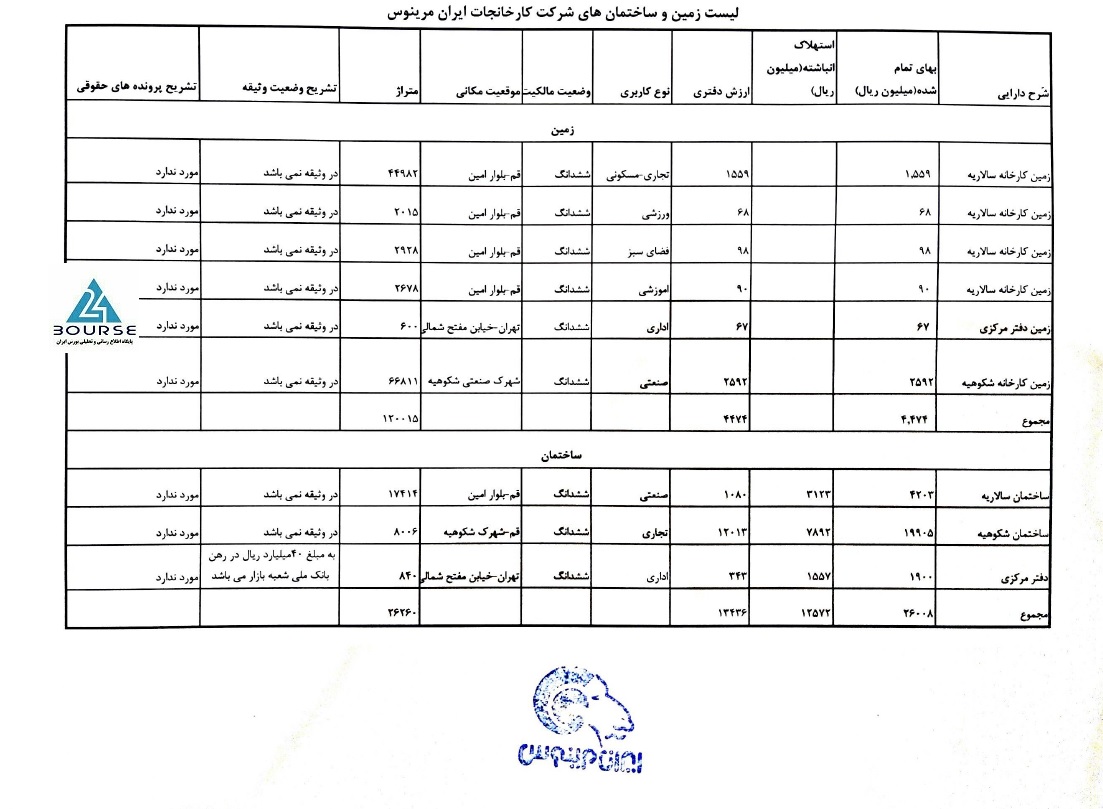 لیست زمین و ساختمان های شرکت کارخانجات ایران مرینوس
شرح دارایی بهای تمام شده(میلیون ریال) استهلاک انباشته(میلیون ریال) ارزش دفتری نوع کاربری وضعیت مالکیت موقعیت مکانی متراژ تشریح وضعیت وثیقه تشریح پرونده های حقوقی
زمین
زمین کارخانه سالاریه ۱,۵۵۹ ۱۵۵۹ تجاری-مسکونی ششدانگ قم-بلوار امین ۴۴۹۸۲ در وثیقه نمی باشد مورد ندارد
زمین کارخانه سالاریه ۶۸ ۶۸ ورزشی ششدانگ قم-بلوار امین ۲۰۱۵ در وثیقه نمی باشد مورد ندارد
زمین کارخانه سالاریه ۹۸ ۹۸ فضای سبز ششدانگ قم-بلوار امین ۲۹۲۸ در وثیقه نمی باشد مورد ندارد
زمین کارخانه سالاریه ۹۰ ۹۰ اموزشی ششدانگ قم-بلوار امین ۲۶۷۸ در وثیقه نمی باشد مورد ندارد
زمین دفتر مرکزی ۶۷ ۶۷ اداری ششدانگ تهران-خیابن مفتح شمالی ۶۰۰ در وثیقه نمی باشد مورد ندارد
زمین کارخانه شکوهیه ۲۵۹۲ ۲۵۹۲ صنعتی ششدانگ شهرک صنعتی شکوهیه ۶۶۸۱۱ در وثیقه نمی باشد مورد ندارد
مجموع ۴,۴۷۴ ۴۴۷۴ ۱۲۰۰۱۵
ساختمان
ساختمان سالاریه ۴۲۰۳ ۳۱۲۳ ۱۰۸۰ صنعتی ششدانگ قم-بلوار امین ۱۷۴۱۴ در وثیقه نمی باشد مورد ندارد
ساختمان شکوهیه ۱۹۹۰۵ ۷۸۹۲ ۱۲۰۱۳ تجاری ششدانگ قم-شهرک شکوهیه ۸۰۰۶ در وثیقه نمی باشد مورد ندارد
دفتر مرکزی ۱۹۰۰ ۱۵۵۷ ۳۴۳ اداری ششدانگ تهران-خیابن مفتح شمالی ۸۴۰ به مبلغ ۴۰میلیارد ریال در رهن بانک ملی شعبه بازار می باشد مورد ندارد
مجموع ۲۶۰۰۸ ۱۲۵۷۲ ۱۳۴۳۶ ۲۶۲۶۰
24
BOURSE
پایگاه اطلاع رسانی و تحلیلی بورس ایران
ایران مرینوس